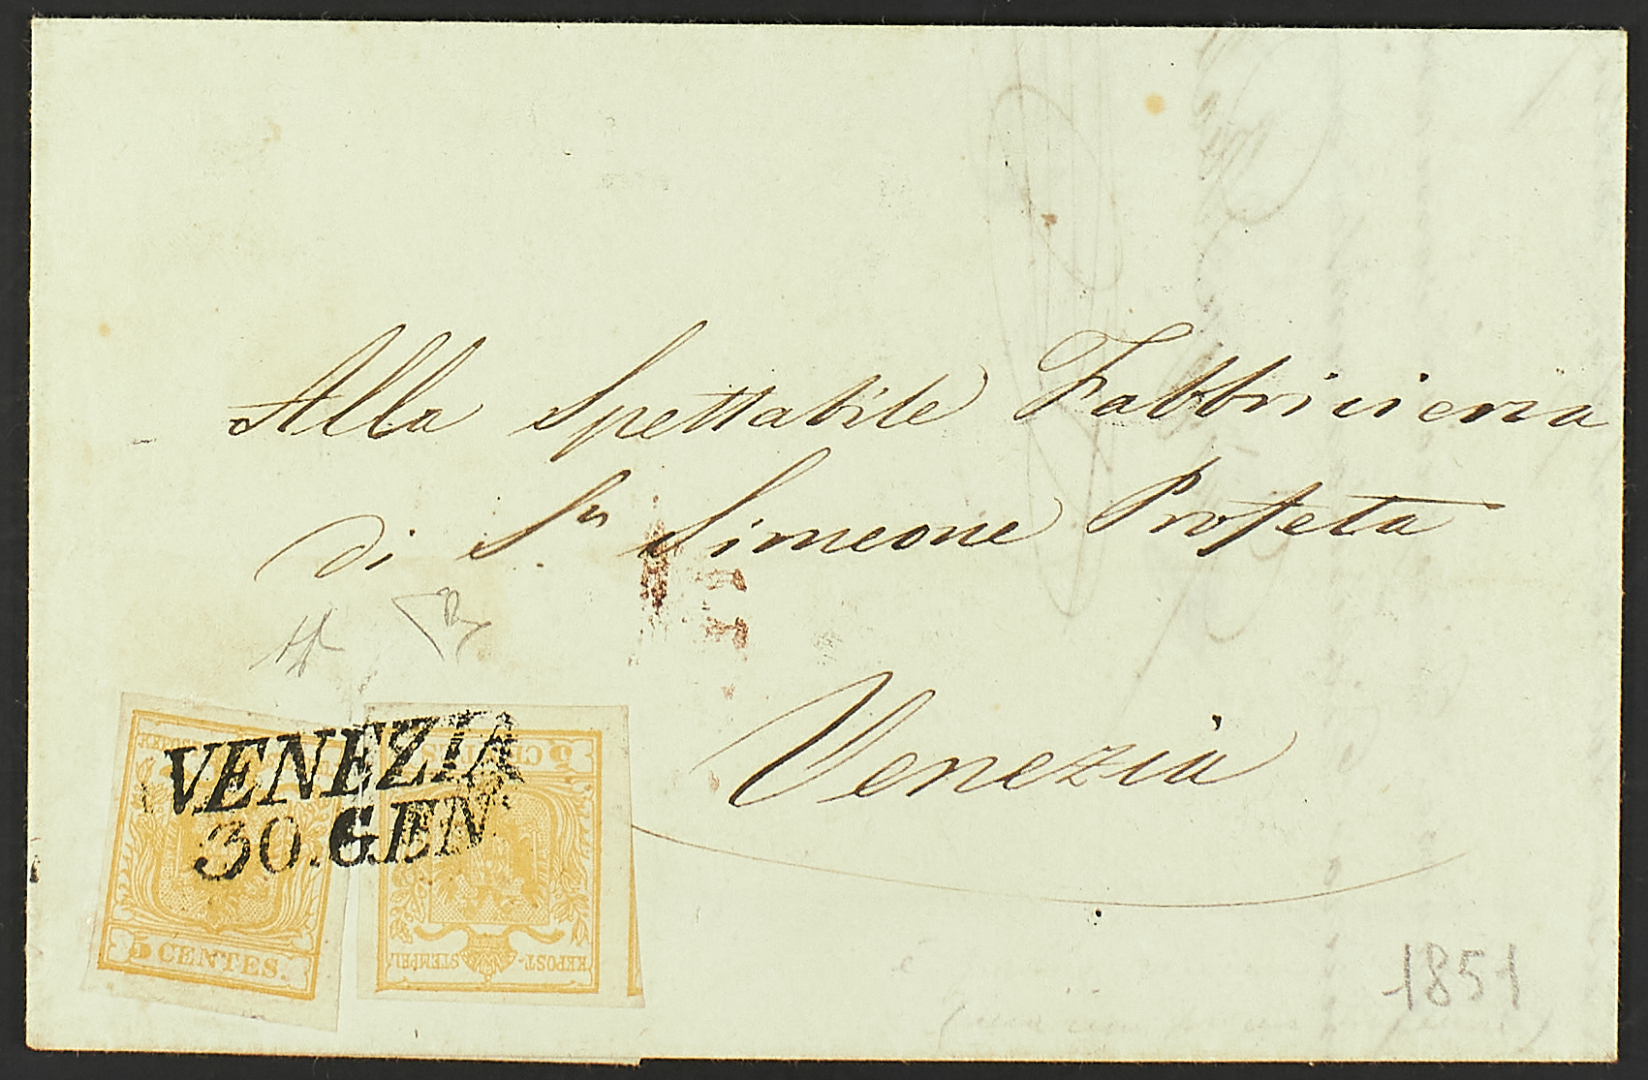 Alla Spettabile Fabbricieria
di Sn Simeone Profeta
Venezia
VENEZIA
30.GEN
5 CENTES.
5 CENTES
KEPOST-
STEMPEL
1851